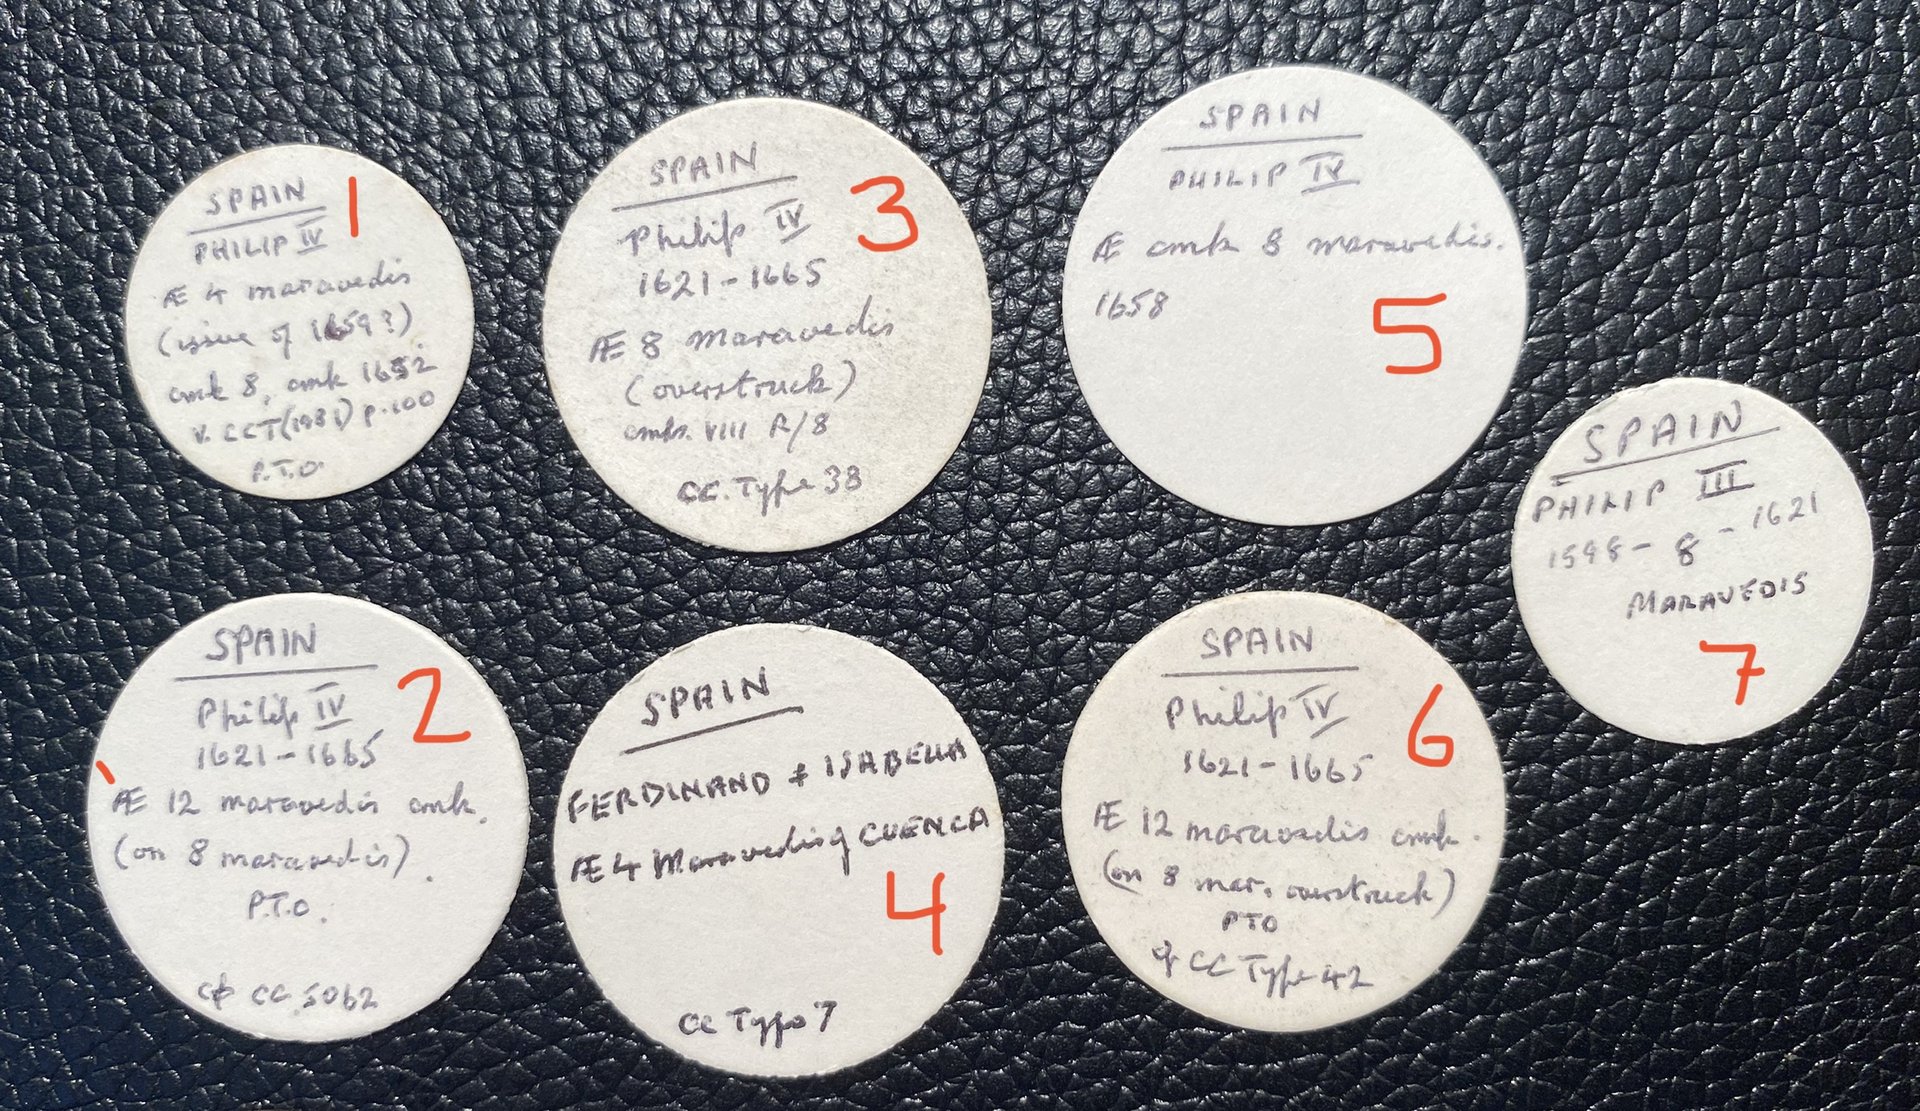 SPAIN
PHILIP IV
Æ 4 maravedis
(issue of 1659?)
cmk 8, cmk 1652
v. CCT(1981) P.100
P.T.O.
1
SPAIN
Philip IV
1621-1665
Æ 12 maravedis cmk.
(on 8 maravedis).
P.T.O.
cf CC.5062
2
SPAIN
Philip IV
1621-1665
Æ 8 maravedis
(overstruck)
cmks. VIII R/8
CC. Type 38
3
SPAIN
FERDINAND + ISABELLA
Æ 4 Maravedis of CUENCA
CC Type 7
4
SPAIN
PHILIP IV
Æ cmk 8 maravedis.
1658
5
SPAIN
Philip IV
1621-1665
Æ 12 maravedis cmk.
(on 8 mar. overstruck)
PTO
cf CC Type 42
6
SPAIN
PHILIP III
1598-8-1621
MARAVEDIS
7